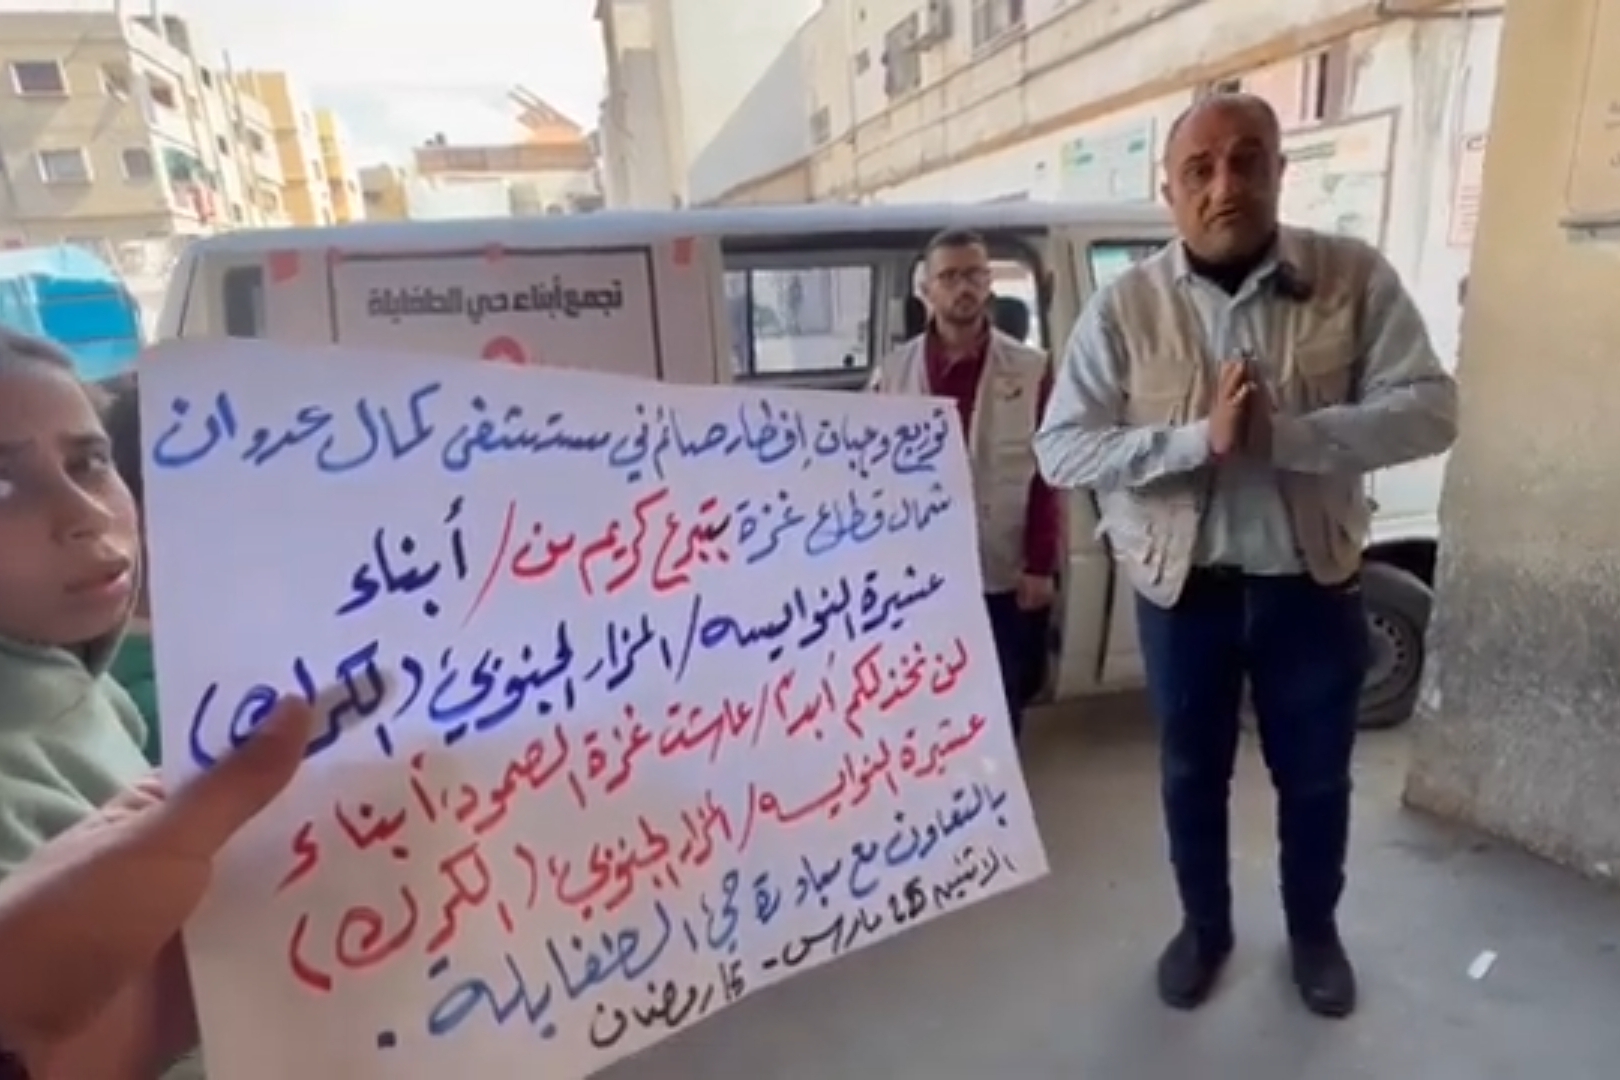 تجمع أبناء حي الطفايلة
توزيع وجبات إفطار صائم في مستشفى كمال عدوان
شمال قطاع غزة بتبرع كريم من / أبناء
عشيرة النوايسه / المزار الجنوبي (الكرك)
لن نخذلكم أبداً / عاشت غزة الصمود، أبناء
عشيرة النوايسه / المزار الجنوبي، (الكرك)
بالتعاون مع مبادرة حي الطفايلة.
الاثنين 25 مارس - 15 رمضان